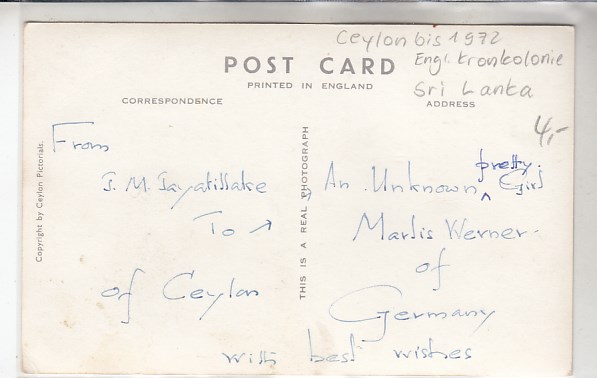 Ceylon bis 1972
POST CARD
Engl. Kronkolonie
PRINTED IN ENGLAND
Sri Lanka
CORRESPONDENCE
ADDRESS
4,-
From
J. M. Jayatillake
To →
of Ceylon
pretty
An Unknown ^ Girl
Marlis Werner
of
Germany
with best wishes
Copyright by Ceylon Pictorials.
THIS IS A REAL PHOTOGRAPH